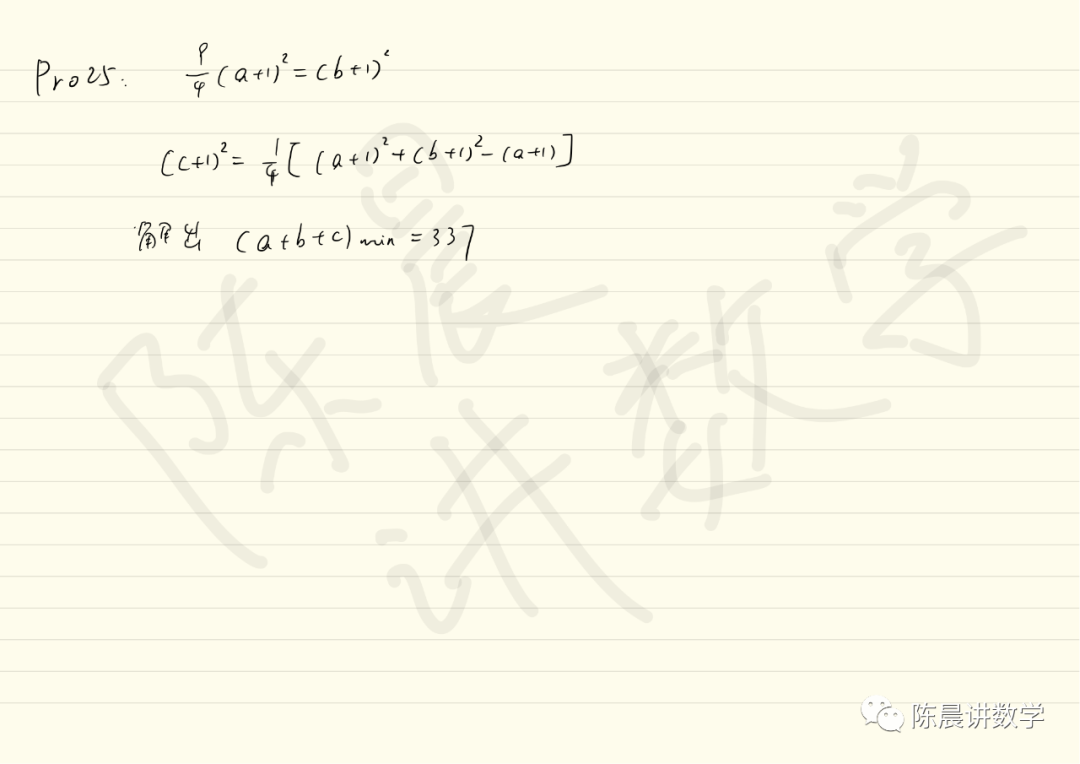 Pro25: P/4 (a+1)² = (b+1)²
(c+1)² = 1/4 [(a+1)² + (b+1)² - (a+1)]
解出 (a+b+c)min = 337
陈晨讲数学
陈晨讲数学